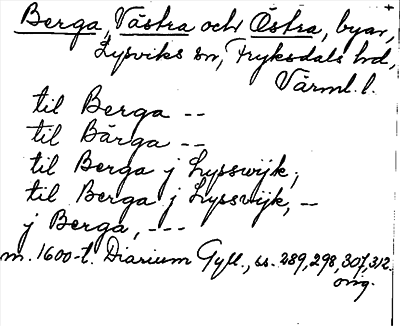 Berga, Västra och Östra, byar,
Lysviks sn, Fryksdals hd,
Värml. l.
til Berga --
til Bärga --
til Berga j Lysswijk,
til Berga j Lyssvijk, --
j Berga, ---
m. 1600-t. Diarium Gyll., ss. 289, 298, 307, 312.
orig.